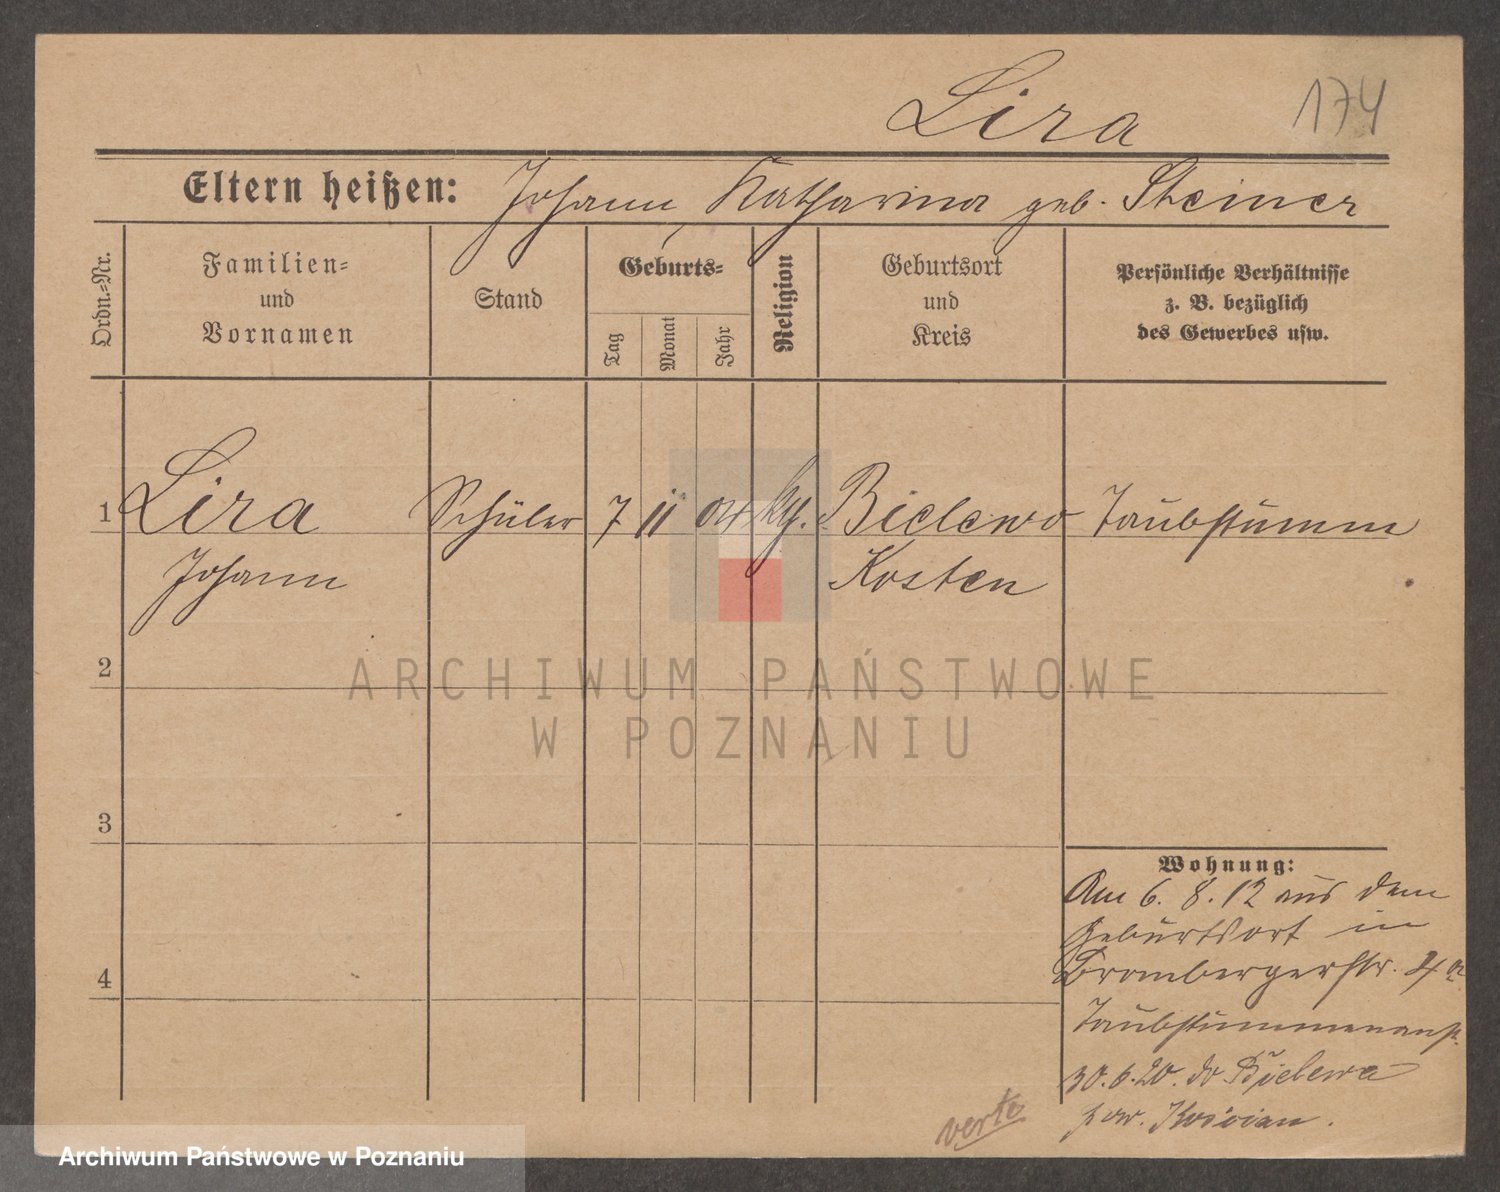 Lira
174
Eltern heißen: Johann, Katharina geb. Steiner
Ordn.-Nr.
Familien-
und
Vornamen
Stand
Geburts-
Tag
Monat
Jahr
Religion
Geburtsort
und
Kreis
Persönliche Verhältnisse
z. B. bezüglich
des Gewerbes usw.
1 Lira Schüler 7 11 04 kg. Bielewo Taubstumm
Johann Kosten
2
3
4
Wohnung:
Am 6. 8. 12 aus dem
Geburtsort in
Brombergerstr. 4a
Taubstummenanst.
30.6.20. do Bielewa
pow. Kościan.
verte
ARCHIWUM PAŃSTWOWE
W POZNANIU
Archiwum Państwowe w Poznaniu